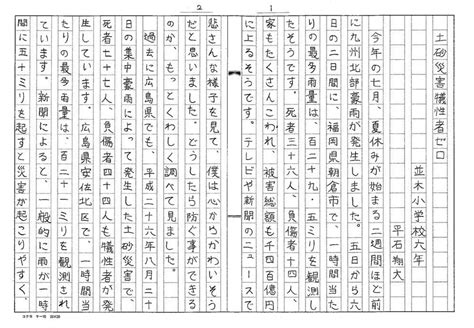 土砂災害犠牲者ゼロ
並木小学校六年
平石翔大
今年の七月、夏休みが始まる二週間ほど前
に九州北部豪雨が発生しました。五日から六
日の二日間に、福岡県朝倉市で、一時間当た
りの最多雨量は、百二十九・五ミリを観測し
たそうです。死者三十六人、負傷者十四人、
家もたくさんこわれ、被害総額も千四百億円
に上るそうです。テレビや新聞のニュースで
悲さんな様子を見て、僕は心からかわいそう
だと思いました。どうしたら防ぐ事ができる
のか、もっとくわしく調べて見ました。
過去に広島県でも、平成二十六年八月二十
日の集中豪雨によって発生した土砂災害で、
死者七十七人、負傷者四十四人も犠牲者が発
生しています。広島県安佐北区で、一時間当
たりの最多雨量は、百二十一ミリを観測され
ています。新聞によると、一般的に雨が一時
間に五十ミリを起すと災害が起こりやすく、
1
2